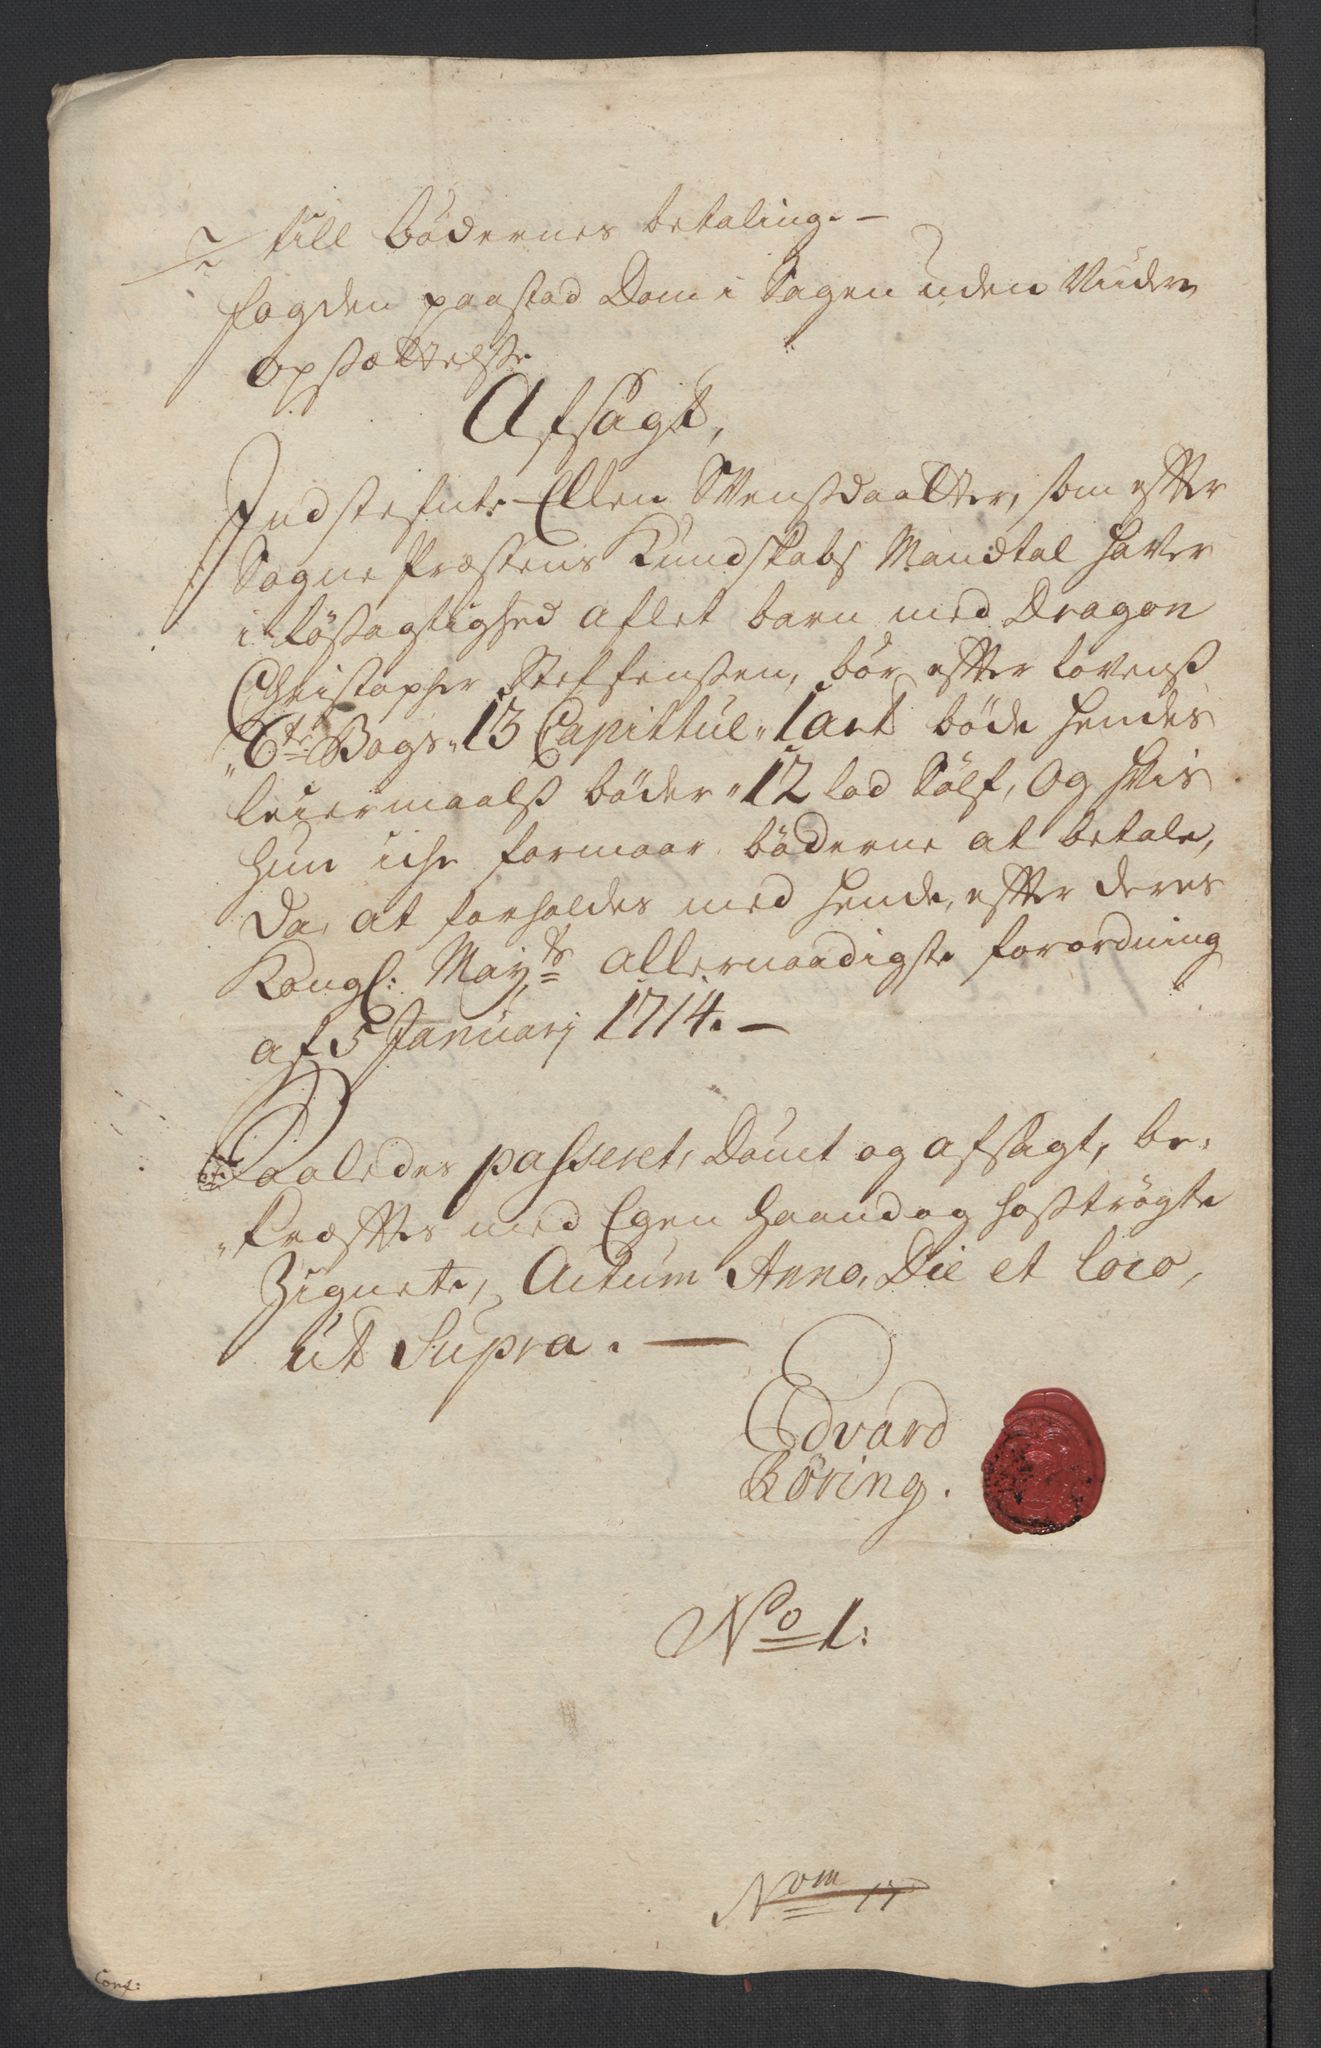 till bødernes betaling. —
fogden paastod Dom i Sagen uden Viidere
opsættelse
Afsagt,
Indstefnte Ellen Svensdaatter, som efter
Sogne Præstens Kundskabs Mandtal haver
i løsagtighed aflet barn med Dragon
Christopher Steffensen, bør efter lovens
6te Bogs 13 Capittul 1 art bøde hendes
leiermaals bøder 12 lod Sølf, Og hvis
hun iche formaar bøderne at betale,
Da, at forholdes med hende, efter deres
Kongl: Mayts allernaadigste forordning
af 5 Januarj 1714. —
Saaledes passeret, Dømt og afsagt, be-
kræfftes med Egen haand og hostrøgte
Zignete, Actum Anno, Die et loco,
ut Supra. —
Edvard
Röring.
No 1:
Nom 17
Conf: